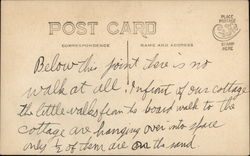 POST CARD
CORRESPONDENCE
NAME AND ADDRESS
PLACE
POSTAGE
STAMP
HERE
Below this point there is no
walk at all! In front of our cottage
the little walks from the board walk to the
cottage are hanging over into space
only ½ of them are on the sand